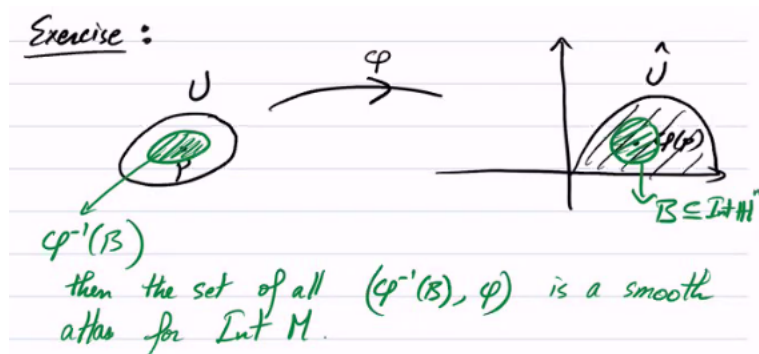 Exercise :
φ
U
Û
P
φ(p)
B ⊆ Int ℍⁿ
φ⁻¹(B)
then the set of all (φ⁻¹(B), φ) is a smooth
atlas for Int M.